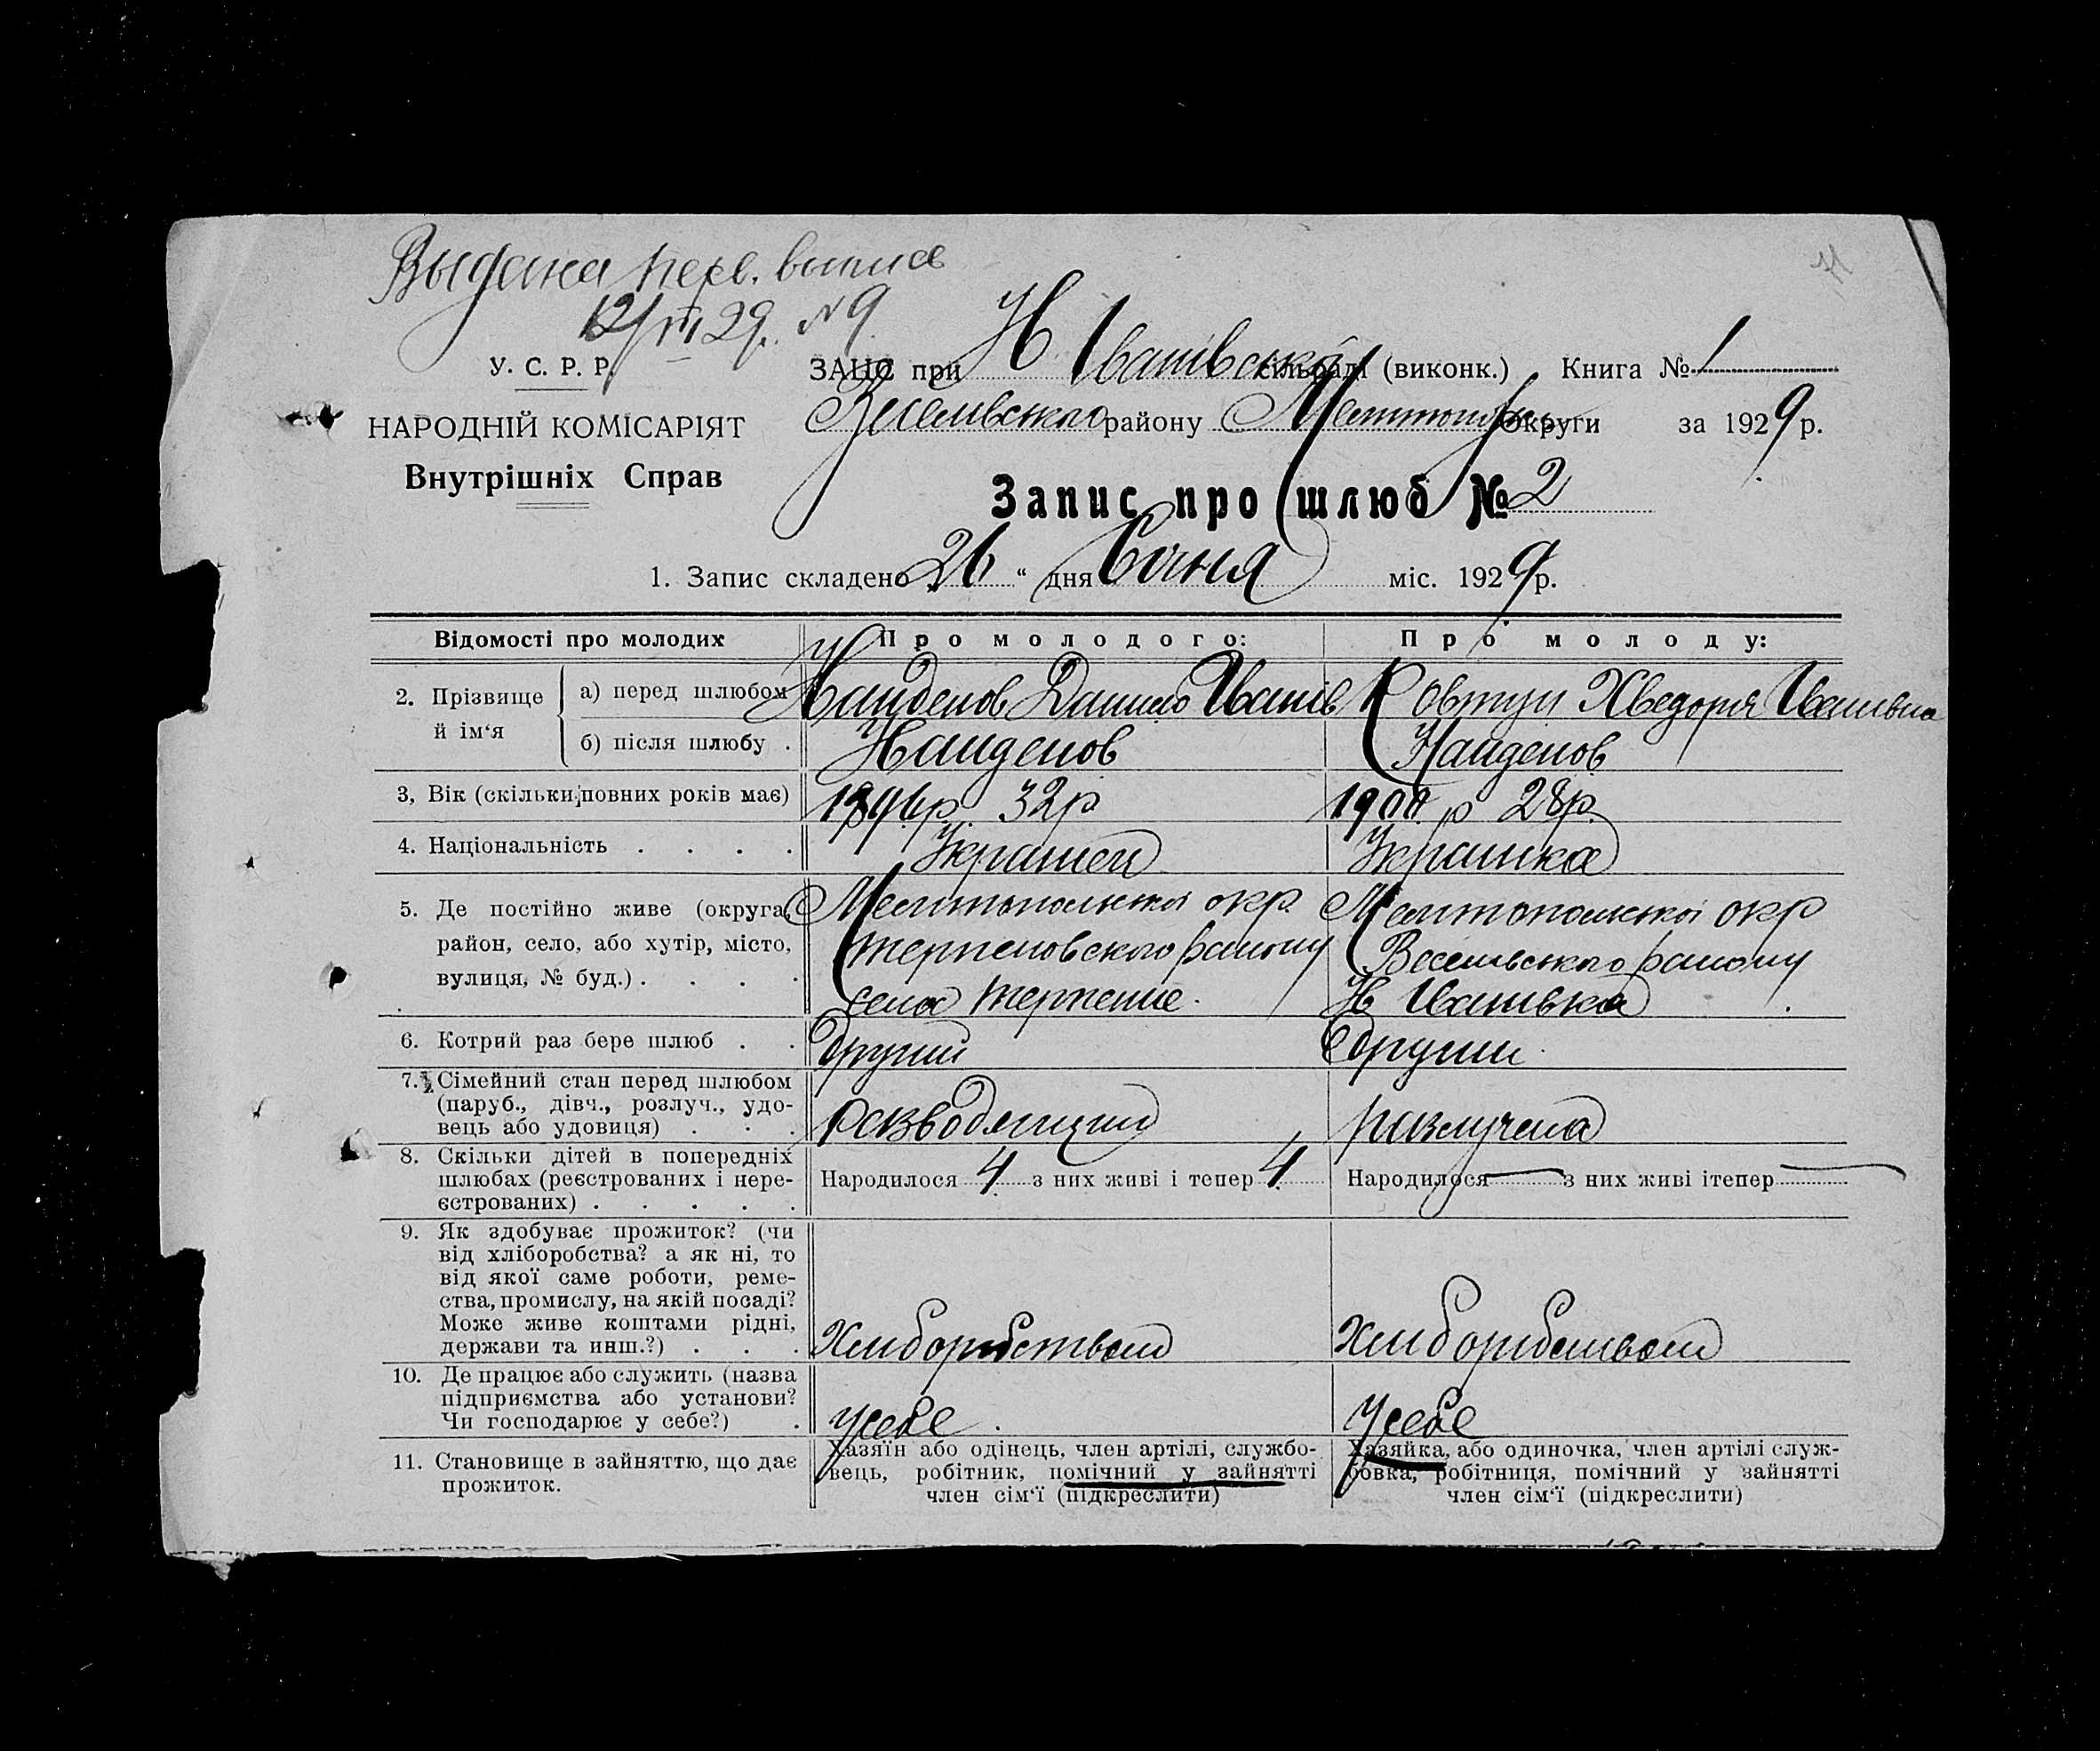 Выдана перв. выпись
12/III 29. №9
У. С. Р. Р.
НАРОДНІЙ КОМІСАРІЯТ
Внутрішніх Справ
ЗАЦС при Н Іванівській сільраді (виконк.) Книга № 1
Веселівского району Мелітопольс Округи за 1929 р.
Запис про шлюб № 2
1. Запис складено 26 “ дня Січня міс. 1929 р.
Відомості про молодих Про молодого: Про молоду:
2. Прізвище й ім‘я
а) перед шлюбом Найденов Данило Іванів Ковтун Хведоря Іванівна
б) після шлюбу . Найденов Найденов
3, Вік (скільки повних років має) 1896 р 32 р 1900 р 28 р.
4. Національність . . . . Українец Українка
5. Де постійно живе (округа,
район, село, або хутір, місто,
вулиця, № буд.) . . . .
Мелітопольскої окр.
Терпеновского району
села Терпение.
Мелітопольської окр
Веселівського району
Н Іванівка
6. Котрий раз бере шлюб . . другий другий.
7. Сімейний стан перед шлюбом
(паруб., дівч., розлуч., удо-
вець або удовиця) . . .
разлучена
8. Скільки дітей в попередніх
шлюбах (реєстрованих і нере-
єстрованих) . . . . .
Народилося 4 з них живі і тепер 4
Народилося — з них живі ітепер —
9. Як здобуває прожиток? (чи
від хліборобства? а як ні, то
від якої саме роботи, реме-
ства, промислу, на якій посаді?
Може живе коштами рідні,
держави та инш.?) . . .
Хліборобством
Хліборобством
10. Де працює або служить (назва
підприємства або установи?
Чи господарює у себе?) .
У себе.
У себе
11. Становище в зайняттю, що дає
прожиток.
Хазяїн або одінець, член артілі, службо-
вець, робітник, помічний у зайнятті
член сім‘ї (підкреслити)
Хазяйка, або одиночка, член артілі служ-
бовка, робітниця, помічний у зайнятті
член сім‘ї (підкреслити)